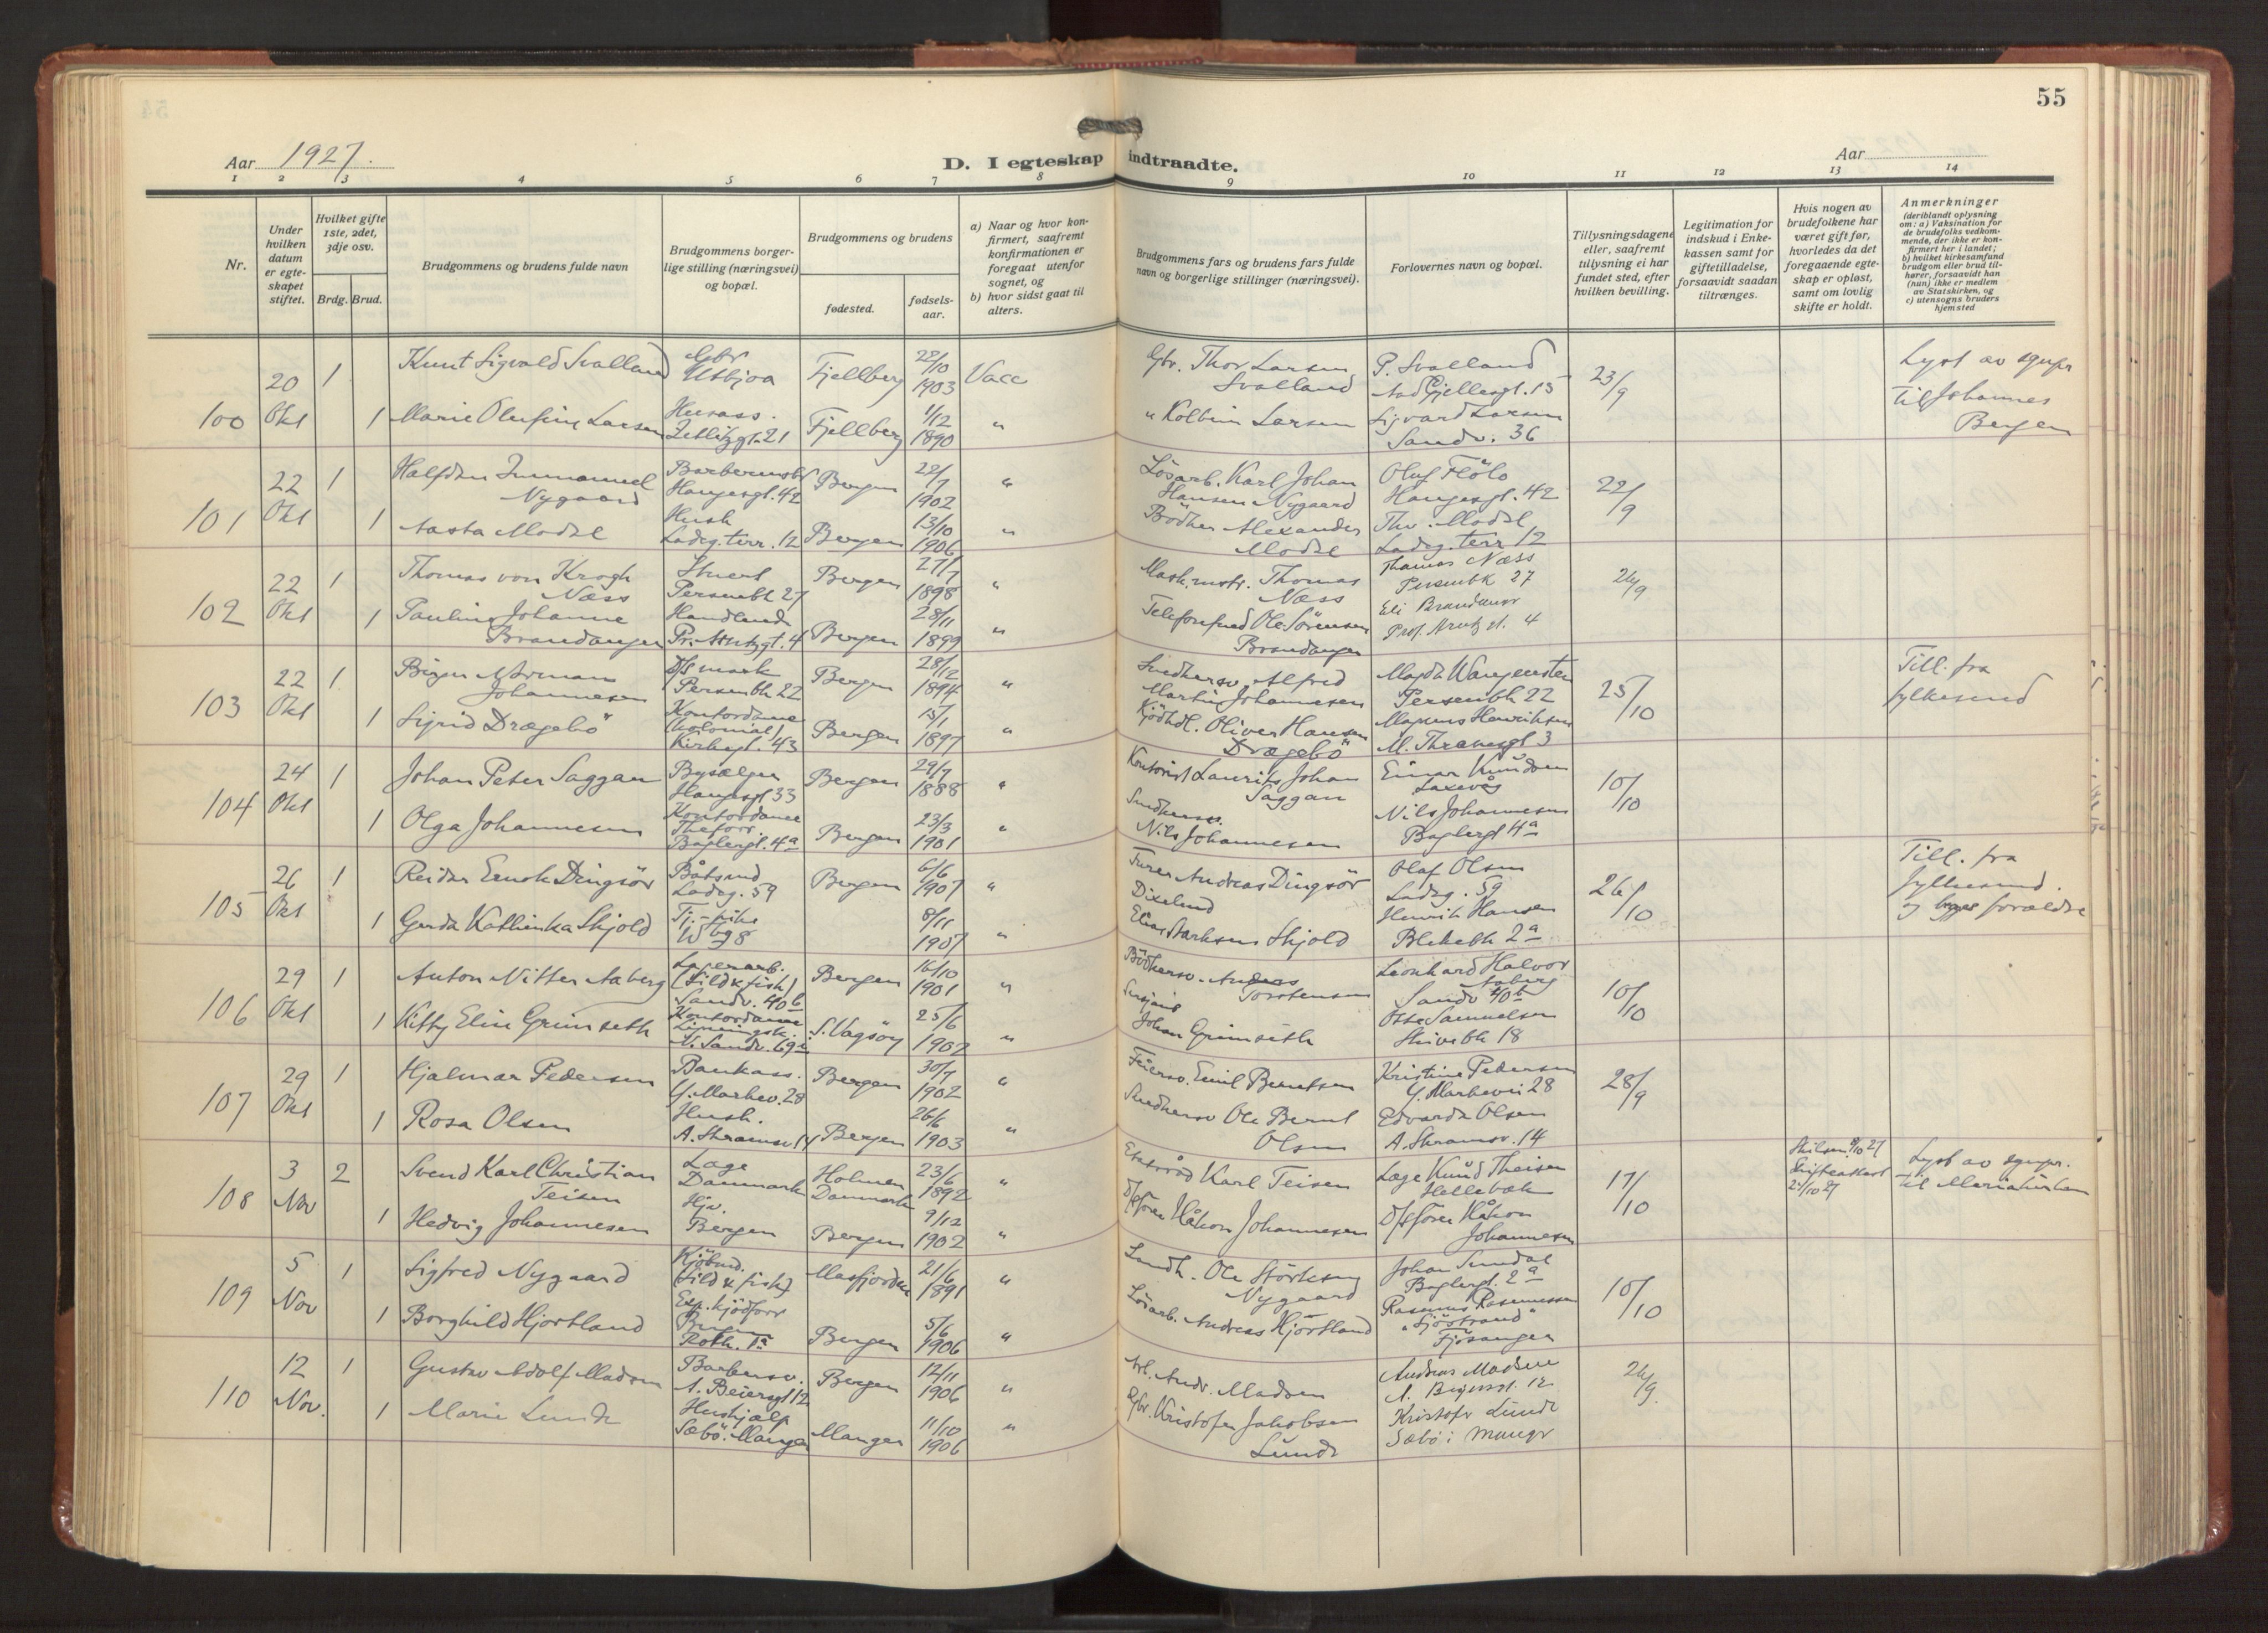 55
Aar 1927.
D. I egteskap indtraadte.
Aar
1 2 3 4 5 6 7 8 9 10 11 12 13 14
Nr.
Under hvilken datum er egteskapet stiftet.
Hvilket gifte 1ste, 2det, 3dje osv.
Brdg. Brud.
Brudgommens og brudens fulde navn
Brudgommens borgerlige stilling (næringsvei) og bopæl.
Brudgommens og brudens
fødested.
fødselsaar.
a) Naar og hvor konfirmert, saafremt konfirmationen er foregaat utenfor sognet, og
b) hvor sidst gaat til alters.
Brudgommens fars og brudens fars fulde navn og borgerlige stillinger (næringsvei).
Forlovernes navn og bopæl.
Tillysningsdagene eller, saafremt tillysning ei har fundet sted, efter hvilken bevilling.
Legitimation for indskud i Enkekassen samt for giftetilladelse, forsaavidt saadan tiltrænges.
Hvis nogen av brudefolkene har været gift før, hvorledes da det foregaaende egteskap er opløst, samt om lovlig skifte er holdt.
Anmerkninger
(deriblandt oplysning om: a) Vaksination for de brudefolks vedkommende, der ikke er konfirmert her i landet; b) hvilket kirkesamfund brudgom eller brud tilhører, forsaavidt han (hun) ikke er medlem av Statskirken, og c) utensogns bruders hjemsted
100 20 Okt 1 Knut Sigvald Svalland Gbr Utbjoa Fjellberg 22/10 1903 Vacc Gbr. Thor Larsen Svalland P. Svalland 23/9 Lyst av sgnpr til Johannes Bergen
1 Marie Olufine Larsen Husass. Zetlitzgt. 21 Fjellberg 1/12 1890 " " Kolbein Larsen Sigvard Larsen Sandv. 36
101 22 Okt 1 Halfdan Immanuel Nygaard Haugesgt. 42 Bergen 22/7 1902 " Lösarb. Karl Johan Hansen Nygaard Oluf Flölo Haugesgt. 42 22/9
1 Aasta Modal Hush Ladeg. terr. 12 Bergen 13/10 1906 " Bödker Alexander Thv. Ladeg. terr 12
102 22 Okt 1 Thomas von Krogh Næss Stuert Persenbk 27 Bergen 27/7 1898 " Mask.mstr. Thomas Næss Thomas Næss Persenbk 27 26/9
1 Pauline Johanne Brandanger Bergen 28/11 1899 " Ole Sörensen Brandanger Prof. 4
103 22 Okt 1 Birger Norman Johannesen D/S mask Persenbk 22 Bergen 28/12 1894 " Smedkersv. Alfred Martin Johannesen Magda Wangensten Persenbk 22 25/10 Till. fra fylkesmd
1 Sigrid Drægebö Kontordame (kolonial) Kirkegt. 43 Bergen 15/1 1897 " Kjödhdl. Oliver Hansen Drægebö Magnus Henriksen M. Thranesgt 3
104 24 Okt 1 Johan Peter Saggau Bysælger Haugesgt 33 Bergen 29/7 1888 " Kontorist Laurits Johan Saggau Einar Knudsen Laxevåg 10/10
1 Olga Johannesen Kontordame Baglergt. 4a Bergen 23/3 1901 " Nils Johannesen Nils Johannesen Baglergt 4a
105 26 Okt 1 Reidar Enok Dingsör Båtsmd Ladeg. 59 Bergen 6/6 1907 " Furer Andreas Dingsör Olaf Olsen Ladeg. 59 26/10 Till. fra fylkesmd. og forældre
1 Gerda Kathinka Skjold Tj.-pike 8/11 1907 " Skjold Henrik Hansen Blekebk 2a
106 29 Okt 1 Anton Nitter Aaberg Lagerarb. (Sild & fisk) Sandv. 40b Bergen 16/10 1901 " Bödkersv. Anders Torstensen Leonhard Halvor Aaberg Sandv 40b 10/10
1 Kitty Elin Grimseth Kontordame N. Sandv. S. Vagsöy 25/6 1902 " Johan Grimseth Otto Samuelsen Skivebk 18
107 29 Okt 1 Hjalmar Pedersen Bankass. Y. Markev. 28 Bergen 30/7 1902 " Feiersv. Emil Berntsen Kristine Pedersen Y. Markevei 28 28/9
1 Rosa Olsen Hush. A. Skramsv 14 Bergen 26/6 1903 " Smedkersv Ole Bernt Olsen Edvarda Olsen A. Skramsv. 14
108 3 Nov 2 Svend Karl Christian Teisen Læge Danmark Holmen Danmark 23/6 1892 " Etatsråd Karl Teisen Læge Knud Theisen Hellebæk 17/10 Lyst av sgnpr. til Mariakirken
1 Hedvig Johannesen Hjv. Bergen Bergen 9/12 1902 " D/Sförer Håkon Johannesen D/Sförer Håkon Johannesen
109 5 Nov 1 Sigfred Nygaard Kjöbmd. (Sild & fisk) Masfjorden 21/6 1891 " Landh. Ole Nygaard Johan Sundal Baglergt. 2a 10/10
1 Borghild Hjortland Exp. kjödforr Bergen 5/6 1906 " Lösarb. Andreas Hjortland Rasmus Rasmussen "Sjöstrand" Fjösanger
110 12 Nov. 1 Gustav Adolf Madsen Barbersv. A. Beiersgt 12 Bergen 12/11 1906 " Andr. Madsen Andreas Madsen 26/9.
1 Marie Lunde Hushjælp Sæbö. Manger Manger 11/10 1906 " Gbr. Kristofer Jakobsen Lunde Kristofer Lunde Sæbö i Manger